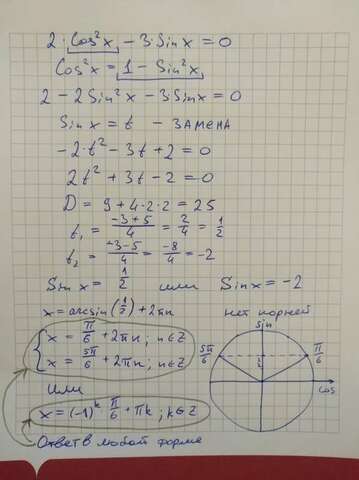 2·Cos²x − 3·Sinx = 0
Cos²x = 1 − Sin²x
2 − 2Sin²x − 3·Sinx = 0
Sinx = t − ЗАМЕНА
−2·t² − 3t + 2 = 0
2t² + 3t − 2 = 0
D = 9 + 4·2·2 = 25
t₁ = (−3+5)/4 = 2/4 = 1/2
t₂ = (−3−5)/4 = −8/4 = −2
Sinx = 1/2 или Sinx = −2
x = arcsin(1/2) + 2πn нет корней
x = π/6 + 2πn; n∈Z
x = 5π/6 + 2πn; n∈Z
или
x = (−1)ᵏ·π/6 + πk; k∈Z
Ответ в любой форме
Sin
5π/6
1/2
π/6
Cos